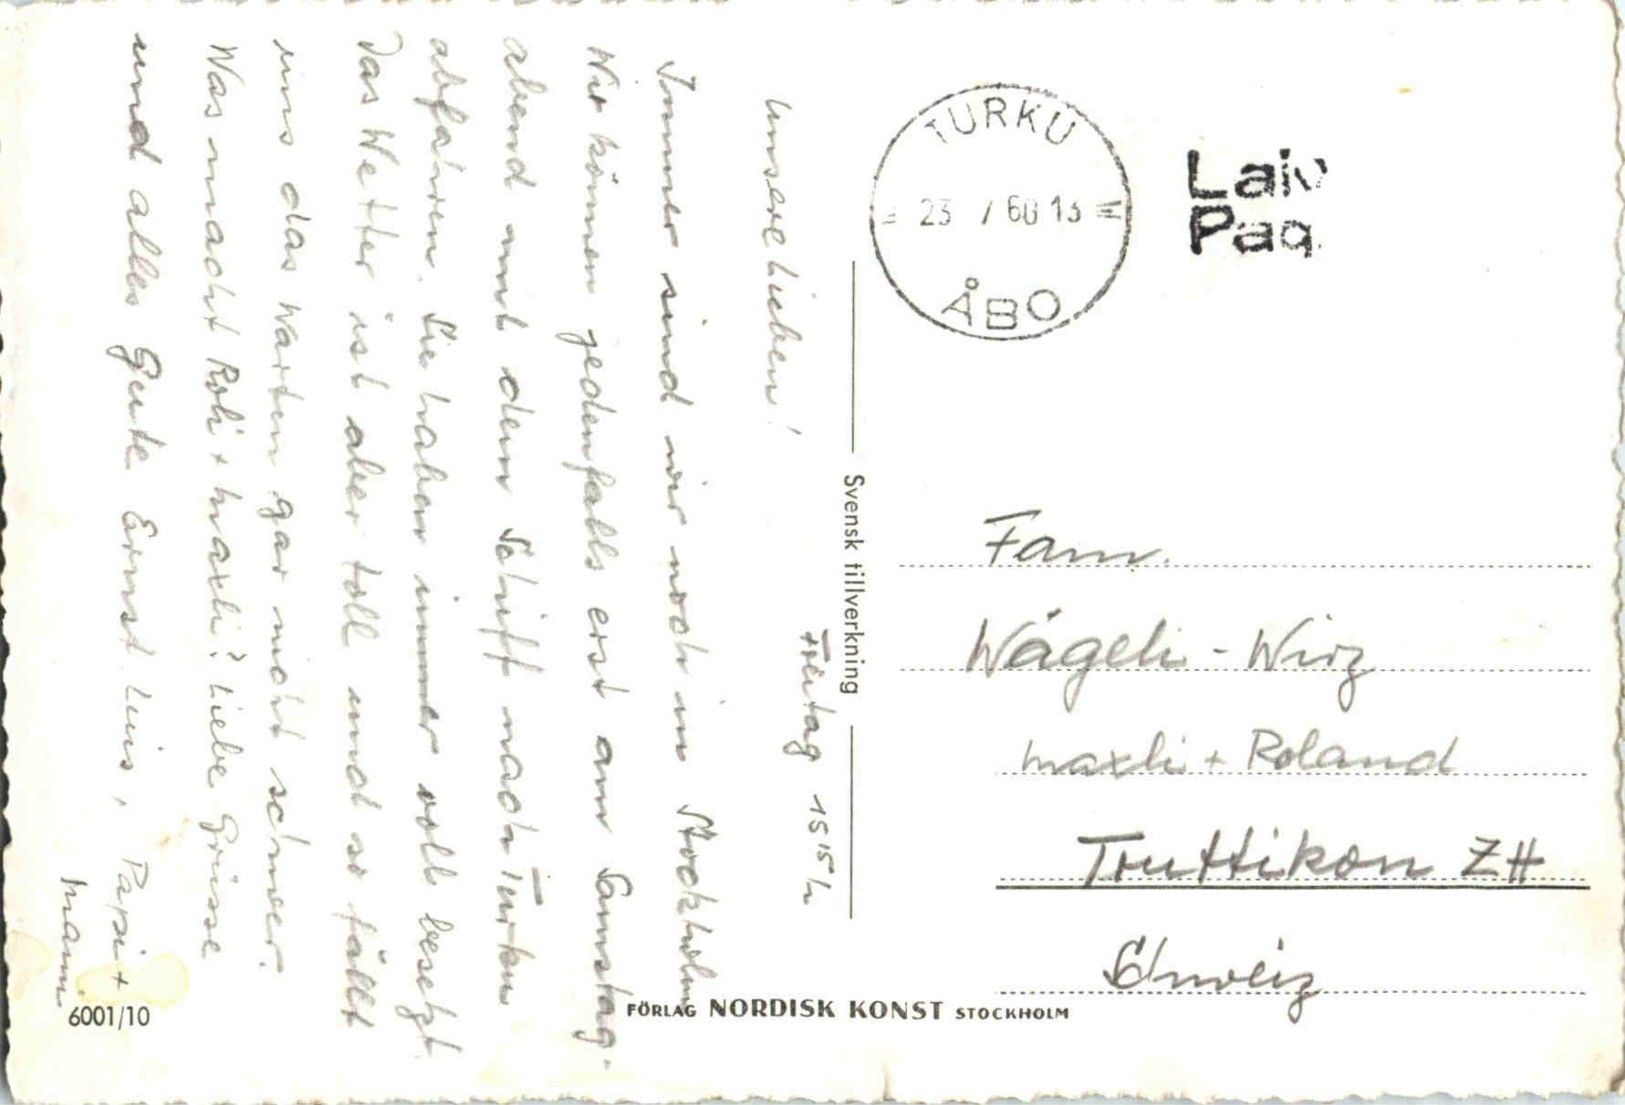 Freitag 15 15 h
Unsere Lieben!
Immer sind wir noch in Stockholm
Wir können jedenfalls erst am Samstag-
abend mit dem Schiff nach Turku
abfahren. Sie haben immer voll besetzt
Das Wetter ist aber toll und so fällt
uns das Warten gar nicht schwer.
Was macht Roli + Maxli? Liebe Grüsse
und alles Gute Ernst Luis, Papi +
Mami
6001/10
Svensk tillverkning
FÖRLAG NORDISK KONST STOCKHOLM
TURKU
23 7 60 13
ÅBO
Laiv
Paq.
Fam.
Wägeli - Wirz
Maxli + Roland
Truttikon ZH
Schweiz